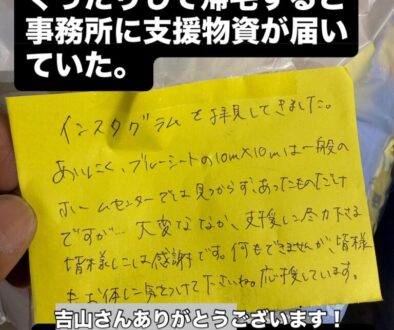 ぐったりして帰宅すると
事務所に支援物資が届い
ていた。
インスタグラムを拝見してきました。
あいにく、ブルーシートの10m×10mは一般の
ホームセンターでは見つからず、あったものだけ
ですが… 大変ななか、支援に尽力下さる
皆様には感謝です。何もできませんが、皆様
もお体に気をつけて下さいね。応援しています。
吉山さんありがとうございます！